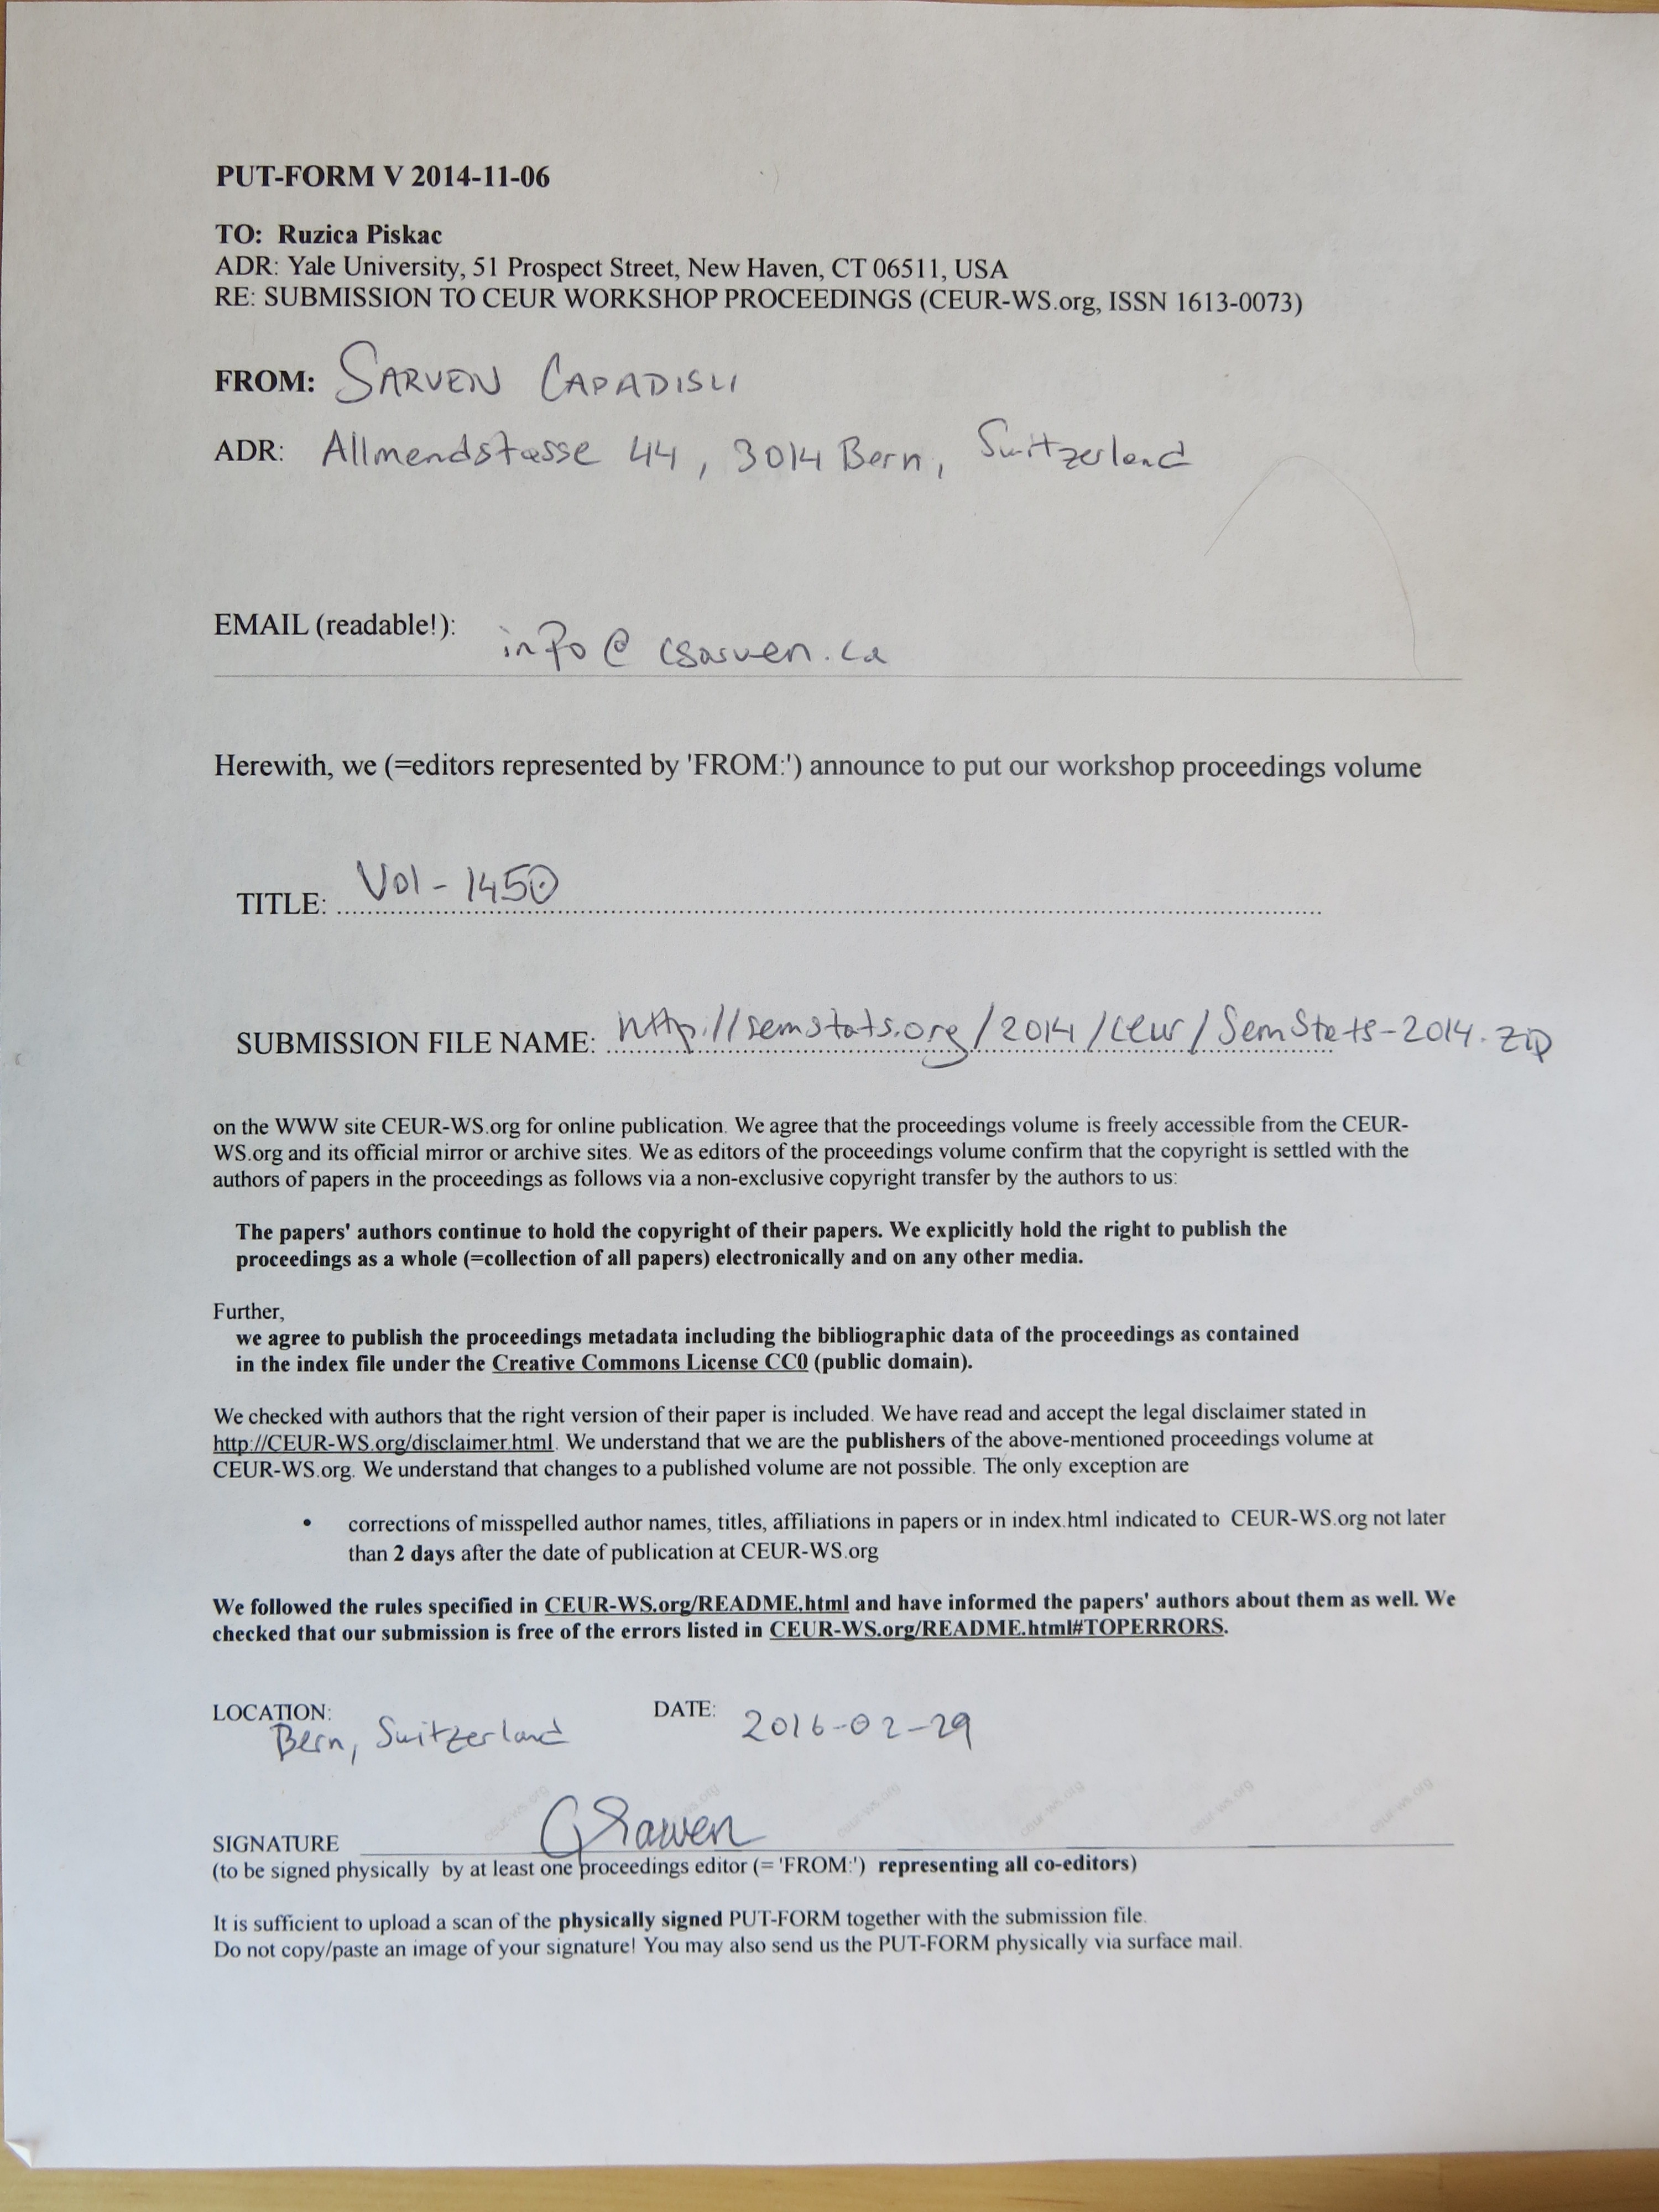 PUT-FORM V 2014-11-06
TO: Ruzica Piskac
ADR: Yale University, 51 Prospect Street, New Haven, CT 06511, USA
RE: SUBMISSION TO CEUR WORKSHOP PROCEEDINGS (CEUR-WS.org, ISSN 1613-0073)
FROM: SARVEN CAPADISLI
ADR: Allmendstasse 44, 3014 Bern, Switzerland
EMAIL (readable!): info@csarven.ca
Herewith, we (=editors represented by 'FROM:') announce to put our workshop proceedings volume
TITLE: Vol-1450
SUBMISSION FILE NAME: http://semstats.org/2014/ceur/SemStats-2014.zip
on the WWW site CEUR-WS.org for online publication. We agree that the proceedings volume is freely accessible from the CEUR-
WS.org and its official mirror or archive sites. We as editors of the proceedings volume confirm that the copyright is settled with the
authors of papers in the proceedings as follows via a non-exclusive copyright transfer by the authors to us:
The papers' authors continue to hold the copyright of their papers. We explicitly hold the right to publish the
proceedings as a whole (=collection of all papers) electronically and on any other media.
Further,
we agree to publish the proceedings metadata including the bibliographic data of the proceedings as contained
in the index file under the Creative Commons License CC0 (public domain).
We checked with authors that the right version of their paper is included. We have read and accept the legal disclaimer stated in
http://CEUR-WS.org/disclaimer.html. We understand that we are the publishers of the above-mentioned proceedings volume at
CEUR-WS.org. We understand that changes to a published volume are not possible. The only exception are
• corrections of misspelled author names, titles, affiliations in papers or in index.html indicated to CEUR-WS.org not later
than 2 days after the date of publication at CEUR-WS.org
We followed the rules specified in CEUR-WS.org/README.html and have informed the papers' authors about them as well. We
checked that our submission is free of the errors listed in CEUR-WS.org/README.html#TOPERRORS.
LOCATION: DATE: 2016-02-29
Bern, Switzerland
ceur-ws.org ceur-ws.org ceur-ws.org ceur-ws.org ceur-ws.org ceur-ws.org
SIGNATURE CSarven
(to be signed physically by at least one proceedings editor (='FROM:') representing all co-editors)
It is sufficient to upload a scan of the physically signed PUT-FORM together with the submission file.
Do not copy/paste an image of your signature! You may also send us the PUT-FORM physically via surface mail.